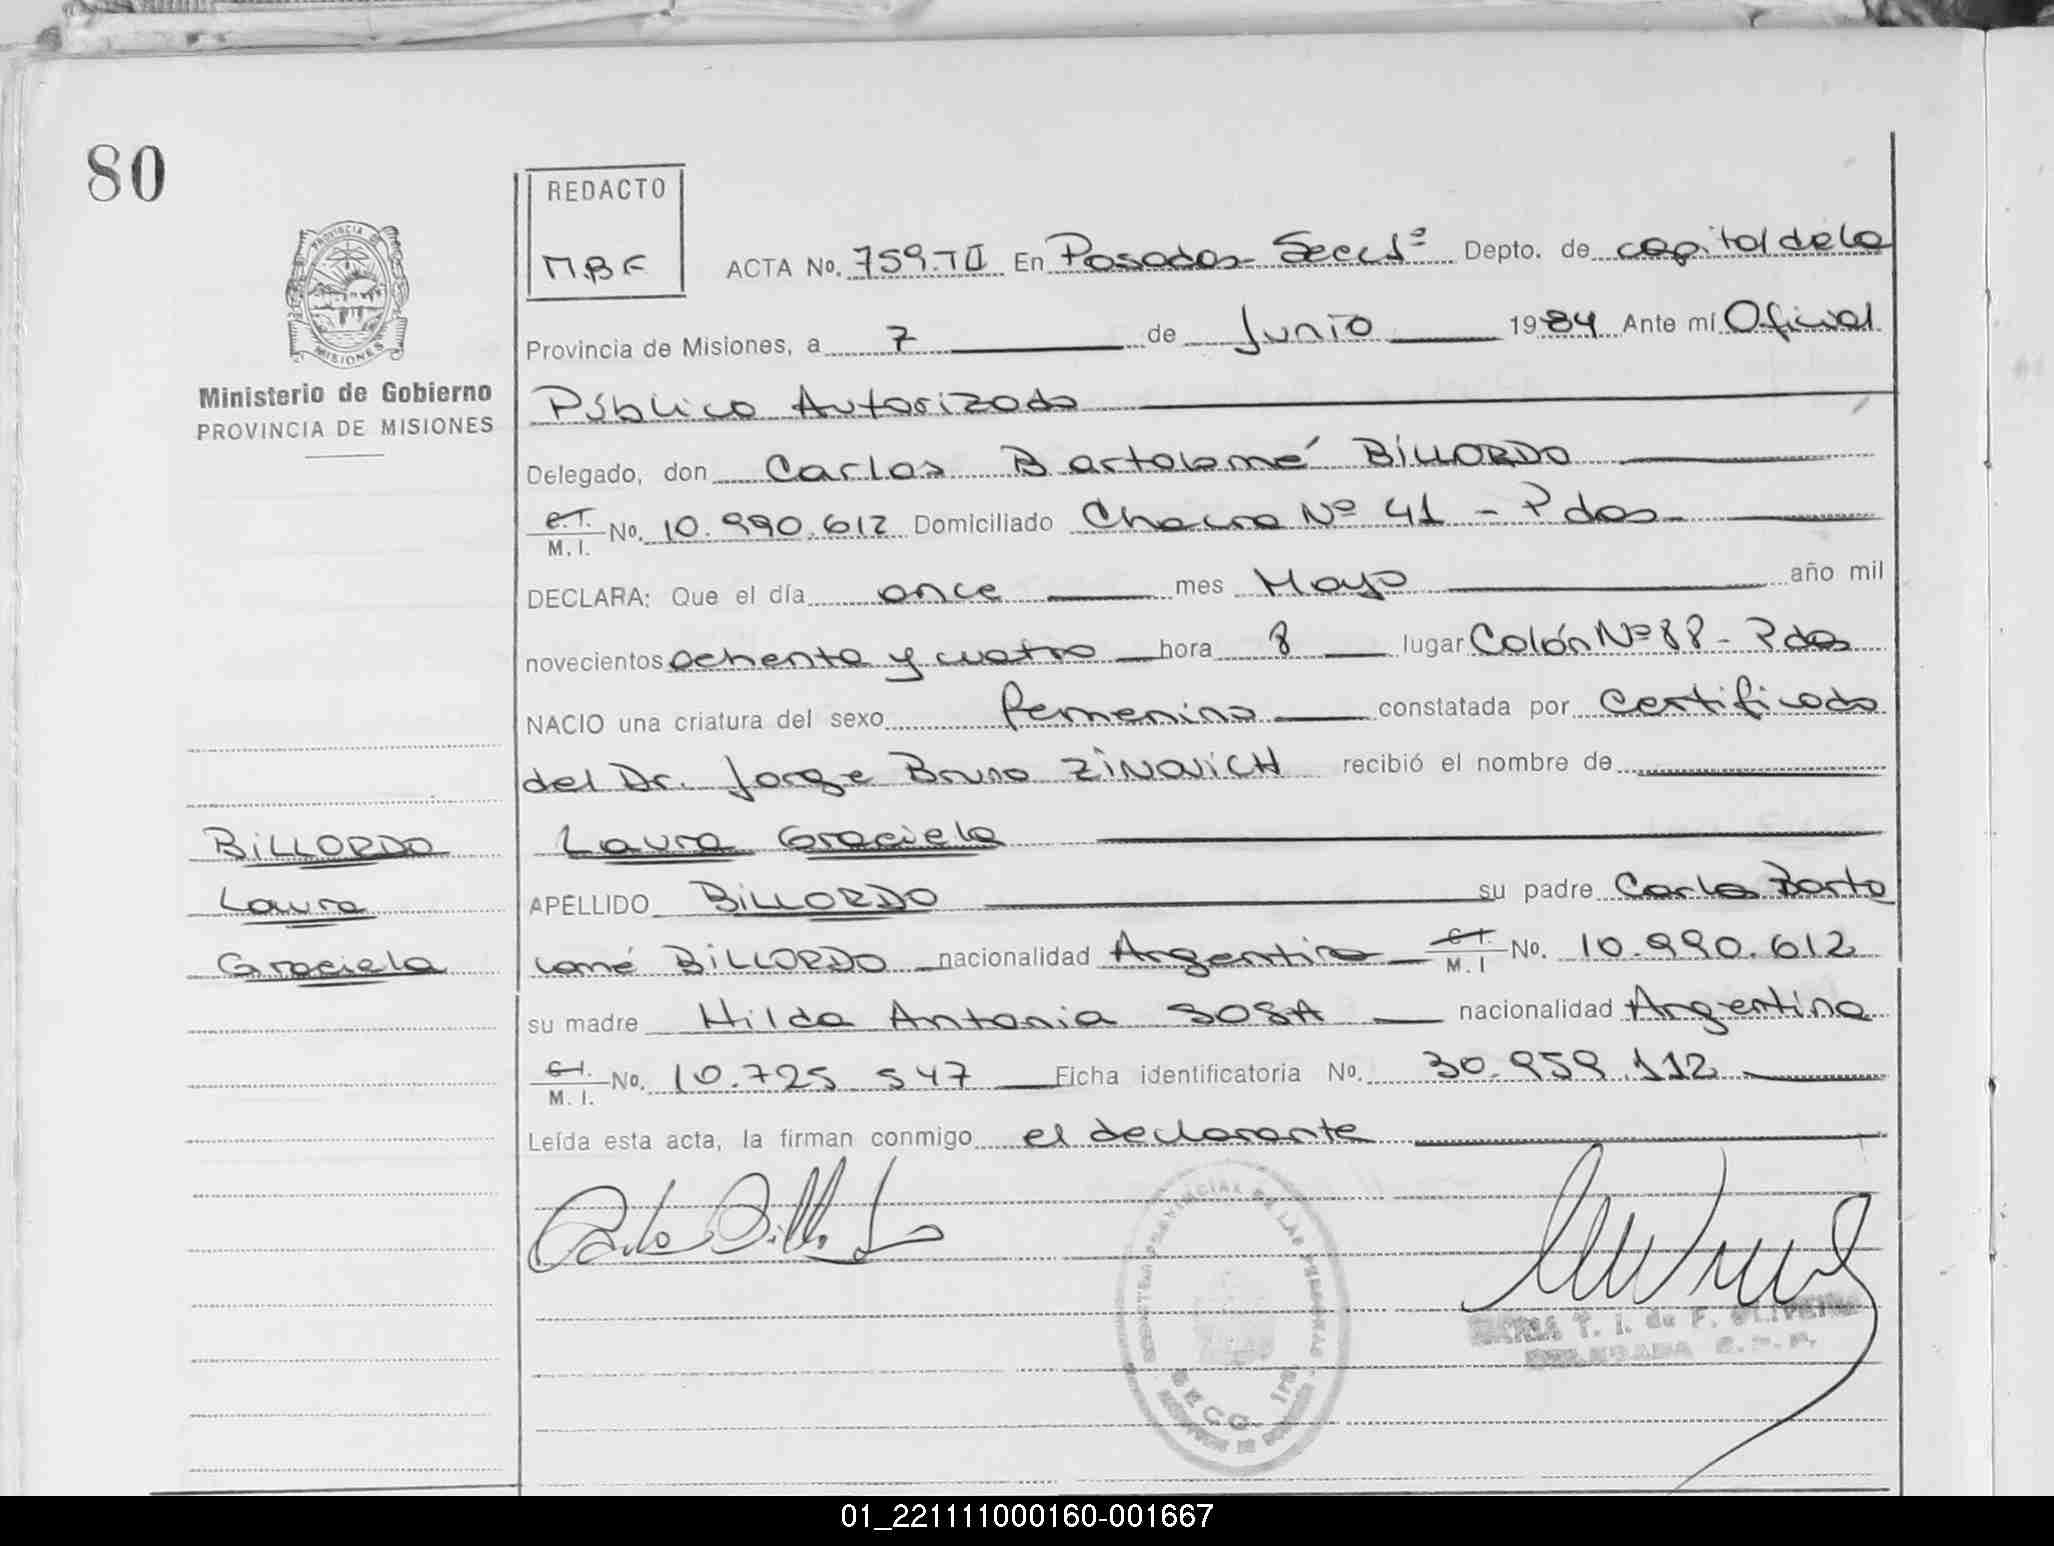 80
REDACTO
MBF
PROVINCIA DE
MISIONES
Ministerio de Gobierno
PROVINCIA DE MISIONES
ACTA No. 759.TII En Posadas Secc 1ª Depto. de capital de la
Provincia de Misiones, a 7 de Junio 1984 Ante mí Oficial
Público Autorizado
Delegado, don Carlos Bartolomé BILLORDO
C.I. M.I. No. 10.990.612 Domiciliado Chacra Nº 41 - Pdas
DECLARA: Que el día once mes Mayo año mil
novecientos ochenta y cuatro hora 8 lugar Colón Nº 88 - Pdas
NACIO una criatura del sexo femenino constatada por Certificado
del Dr. Jorge Bruno ZINOVICH recibió el nombre de
BILLORDO Laura Graciela
Laura APELLIDO BILLORDO su padre Carlos Barto
Graciela lomé BILLORDO nacionalidad Argentina C.I. M.I No. 10.990.612
su madre Hilda Antonia SOSA nacionalidad Argentina
C.I. M.I. No. 10.725 547 Ficha identificatoria No. 30.959.112
Leída esta acta, la firman conmigo el declarante
Carlos Billordo
PROVINCIAL DE LAS PERSONAS
SECC. 1ra
MARIA T. I. de F. OLIVEIRA
DELEGADA R.P.P.
01_221111000160-001667